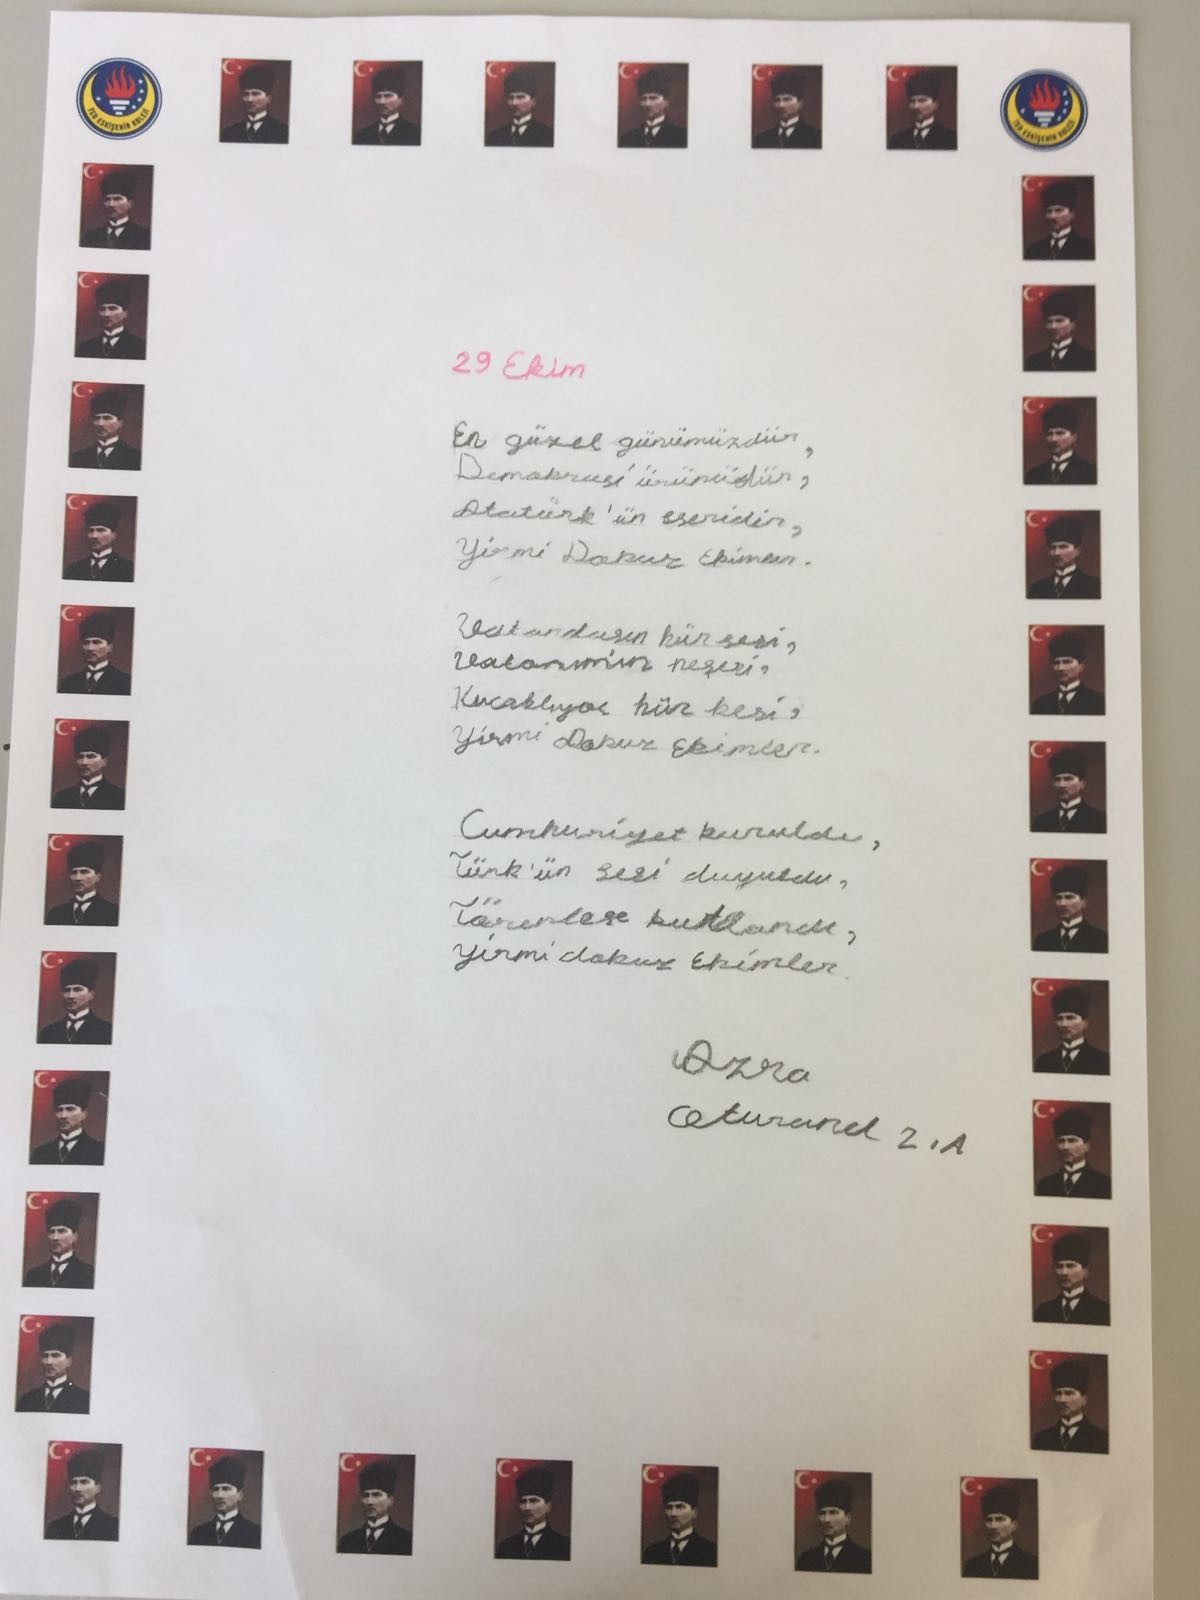 TED ESKİŞEHİR KOLEJİ
TED ESKİŞEHİR KOLEJİ
29 Ekim
En güzel günümüzdür,
Demokrasi ürünüdür,
Atatürk'ün eseridir,
Yirmi Dokuz
Vatandaşın hür sesi,
Vatanımın neşesi,
Kucaklıyor hür kesi,
Yirmi Dokuz Ekimler.
Cumhuriyet kuruldu,
Türk'ün sesi duyuldu,
Törenlese kutlandı,
Yirmi dokuz Ekimler.
Azra
2.A